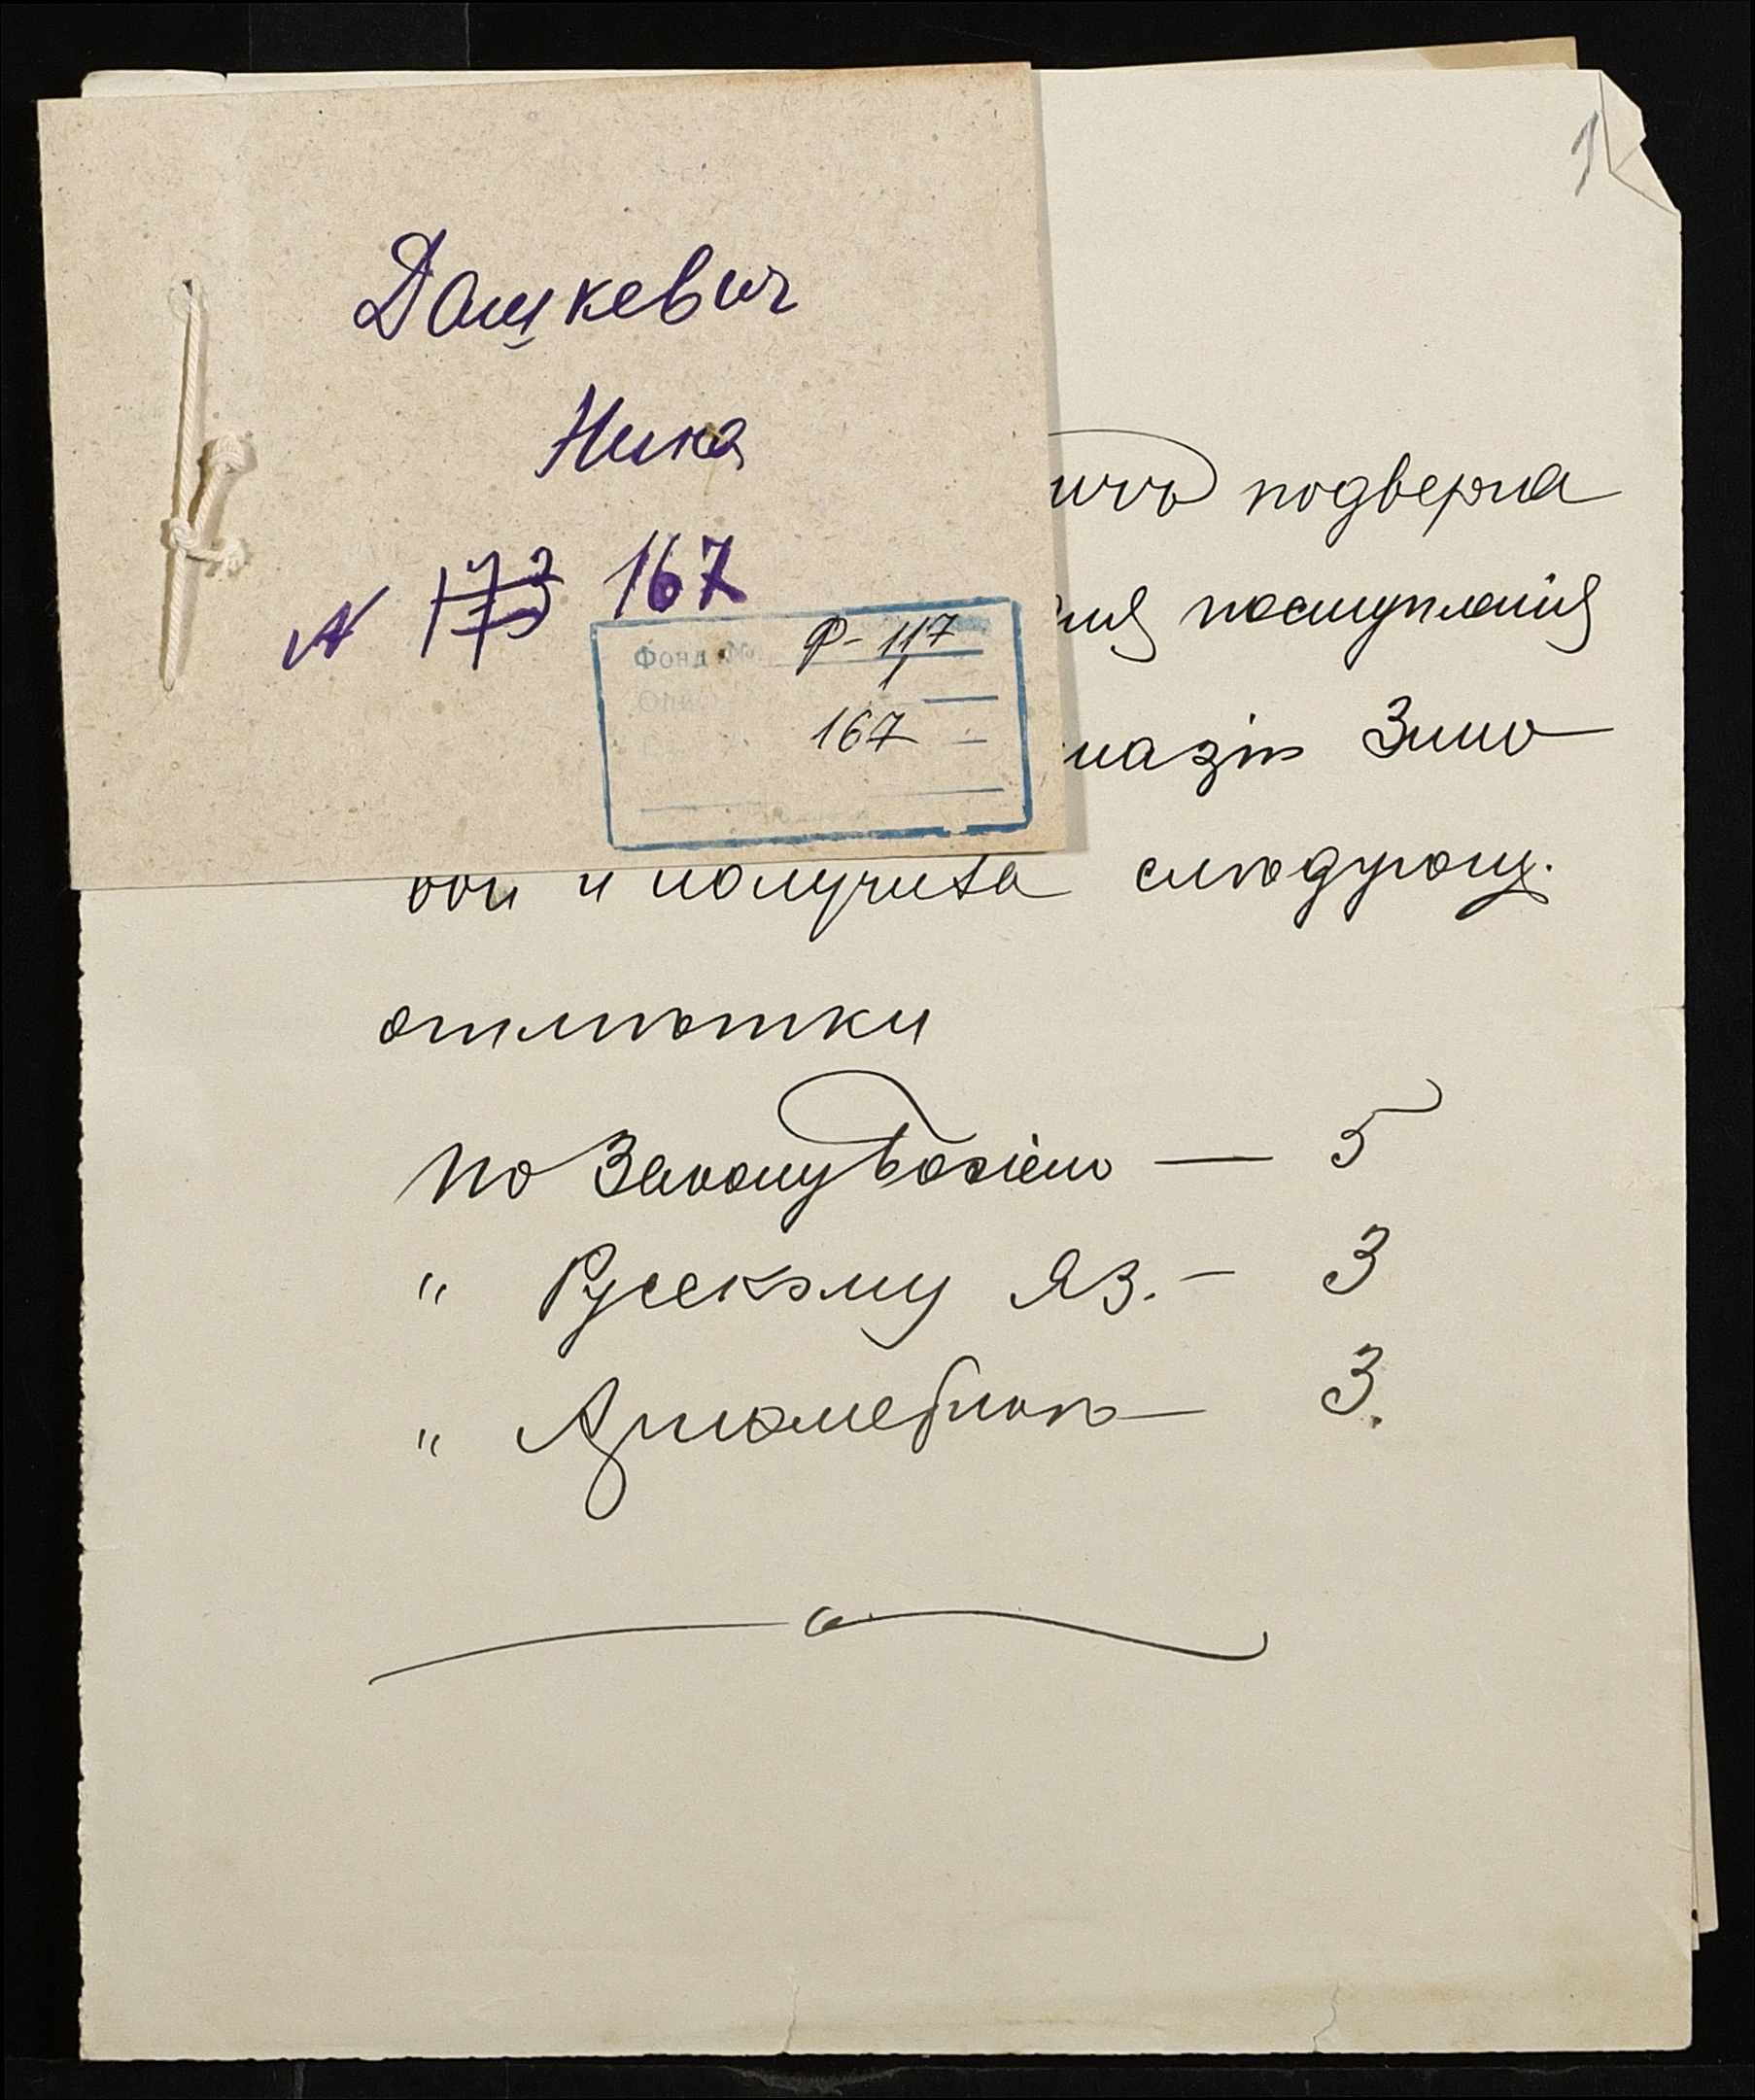 1
Дашкевич
Нина
N 173 167
Фонд №. Ф-117
167
ичъ подверга
для поступленія
назіи Зино
вой и получила слѣдующ.
отмѣтки
по Закону Божію — 5
" Русскому яз. — 3
" Ариѳметикѣ — 3.